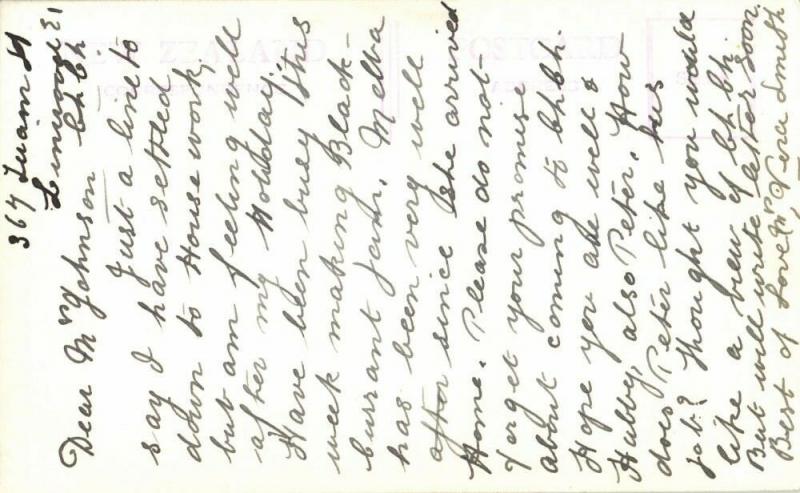 364 Tuam St
Linwood E1
Ch Ch
Dear Mrs Johnson
Just a line to
say I have settled
down to Housework,
but am feeling well
after my Holiday.
Have been busy this
week making Black-
currant Jam, Melba
has been very well
after since she arrived
Home. Please do not
forget your promise
about coming to Ch.Ch.
Hope you are well &
Hubby, also Peter. How
does Peter like his
job? Thought you would
like a view of Ch.Ch.
But will write letter soon
Best of Love Mrs Vera Smith
NEW ZEALAND
POSTCARD
CORRESPONDENCE
ADDRESS